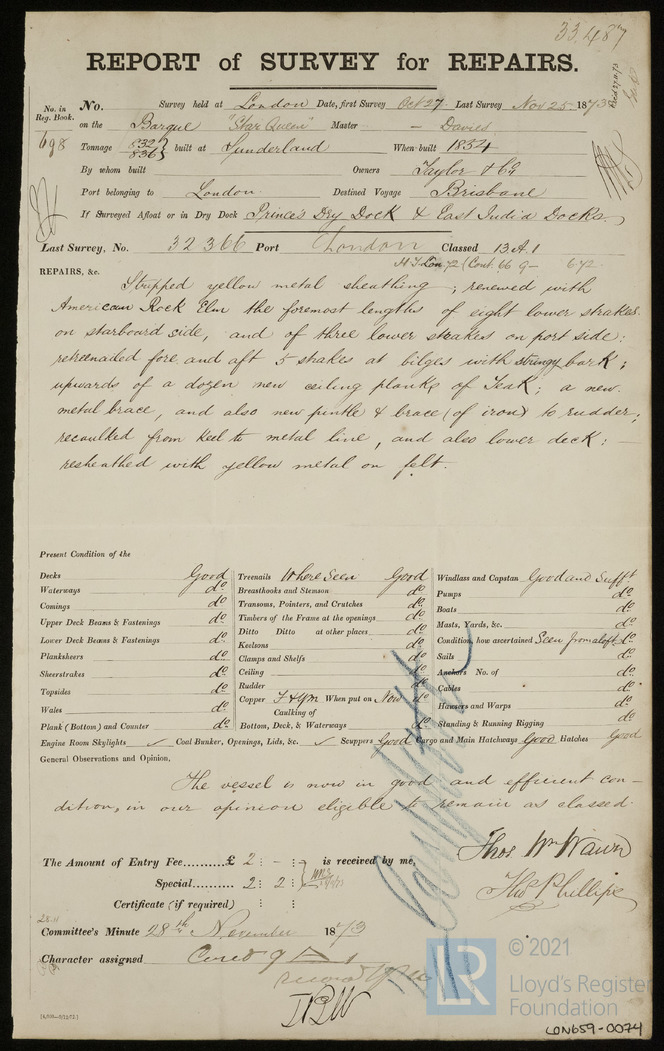 33.487
REPORT of SURVEY for REPAIRS.
No. in Reg. Book. No. Survey held at London Date, first Survey Oct 27 Last Survey Nov 25 1873
on the Barque "Star Queen" Master — Davies
698 Tonnage 832 836 built at Sunderland When built 1854
By whom built Owners Taylor & Co
Port belonging to London Destined Voyage Brisbane
If Surveyed Afloat or in Dry Dock Princes Dry Dock & East India Docks.
Last Survey, No. 32366 Port London Classed 13 A.1
H.T. Lon 72 (Cont. 66 9— 6.72
REPAIRS, &c.
Stripped yellow metal sheathing; renewed with
American Rock Elm the foremost lengths of eight lower strakes
on starboard side, and of three lower strakes on port side;
retreenailed fore and aft 5 strakes at bilges with stringy bark;
upwards of a dozen new ceiling planks of Teak; a new
metal brace, and also new pintle & brace (of iron) to rudder;
recaulked from keel to metal line, and also lower deck: —
resheathed with yellow metal on felt.
Present Condition of the
Decks Good Treenails Where Seen Good Windlass and Capstan Good and Sufft
Waterways do Breasthooks and Stemson do Pumps do
Comings do Transoms, Pointers, and Crutches do Boats do
Upper Deck Beams & Fastenings do Timbers of the Frame at the openings do Masts, Yards, &c. do
Lower Deck Beams & Fastenings do Ditto Ditto at other places do Condition, how ascertained Seen from aloft do
Planksheers do Keelsons do Sails do
Sheerstrakes do Clamps and Shelfs do Anchors No. of do
Topsides do Ceiling do Cables do
Wales do Rudder do Hawsers and Warps do
Plank (Bottom) and Counter do Copper F & Ym When put on Now do Standing & Running Rigging do
Caulking of
Bottom, Deck, & Waterways do
Engine Room Skylights ✓ Coal Bunker, Openings, Lids, &c. ✓ Scuppers Good Cargo and Main Hatchways Good Hatches Good
General Observations and Opinion.
The vessel is now in good and efficient con-
dition, in our opinion eligible to remain as classed.
The Amount of Entry Fee..........£ 2 : - : is received by me,
Special.......... 2 : 2 :
Certificate (if required) : :
Thos. Wm Wawn
Thos Phillips
Committee's Minute 28th November 1873
Character assigned Cont 9 A 1
© 2021
LR
Lloyd's Register
Foundation
LON659-0074